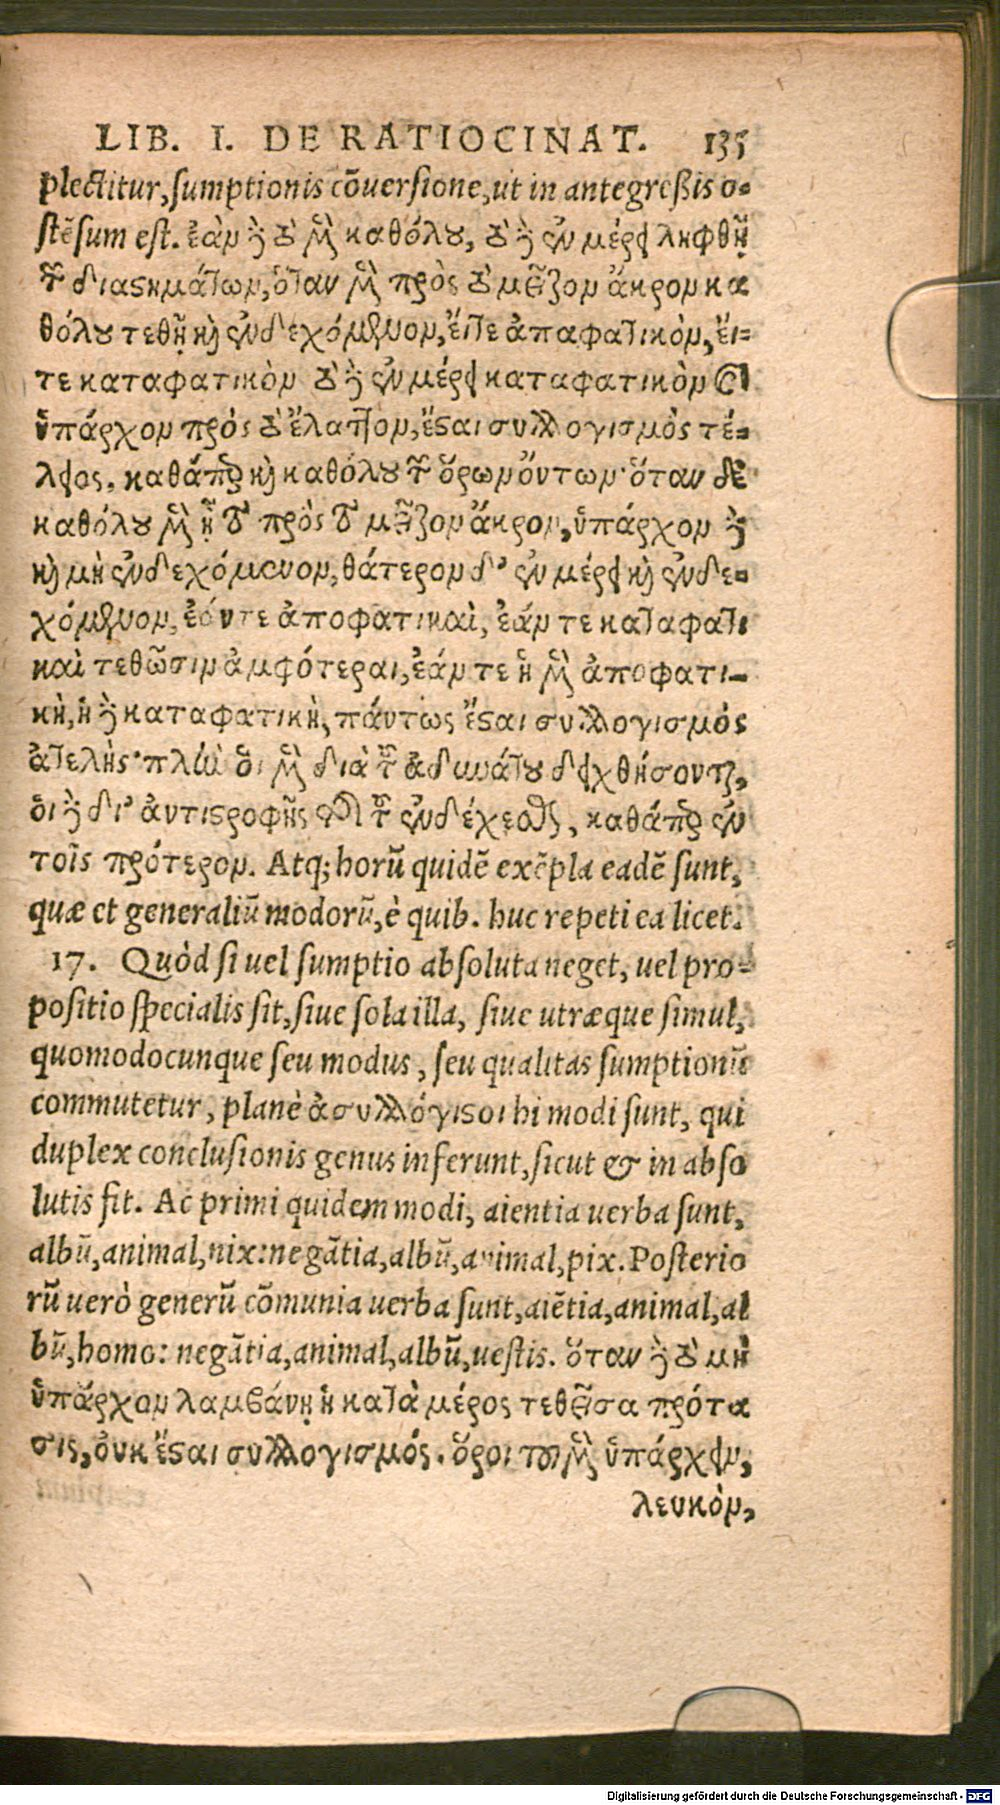 LIB. I. DE RATIOCINAT. 135
plectitur, sumptionis cōuersione, ut in antegreßis o-
stēsum est. ἐὰν ἢ τὸ μὲν καθόλου, τὸ δὲ ἐν μέρει ληφθῇ
τῶν διαστημάτων, ὅταν μὲν πρὸς τὸ μεῖζον ἄκρον κα
θόλου τεθῇ καὶ ἐνδεχόμενον, εἴτε ἀπαφατικὸν, εἴ-
τε καταφατικὸν τὸ δὲ ἐν μέρει καταφατικὸν καὶ
ὑπάρχον πρὸς τὸ ἔλαττον, ἔσται συλλογισμὸς τέ-
λειος, καθάπερ καὶ καθόλου τῶν ὅρων ὄντων· ὅταν δὲ
καθόλου μὲν ᾖ τὸ πρὸς τὸ μεῖζον ἄκρον, ὑπάρχον δὲ
καὶ μὴ ἐνδεχόμενον, θάτερον δ' ἐν μέρει καὶ ἐνδε-
χόμενον, ἐάντε ἀποφατικαὶ, ἐάν τε καταφατι
καὶ τεθῶσιν ἀμφότεραι, ἐάν τε ἡ μὲν ἀποφατι-
κὴ, ἡ δὲ καταφατικὴ, πάντως ἔσται συλλογισμὸς
ἀτελὴς· πλὴν οἱ μὲν διὰ τοῦ ἀδυνάτου δειχθήσονται,
οἱ δὲ δι' ἀντιστροφῆς τῆς τοῦ ἐνδέχεσθαι, καθάπερ ἐν
τοῖς πρότερον. Atq; horū quidē exēpla eadē sunt,
quæ et generaliū modorū, è quib. huc repeti ea licet.
17. Quòd si uel sumptio absoluta neget, uel pro-
positio specialis sit, siue sola illa, siue utræque simul,
quomodocunque seu modus, seu qualitas sumptionū
commutetur, planè ἀσυλλόγιστοι hi modi sunt, qui
duplex conclusionis genus inferunt, sicut & in abso
lutis fit. Ac primi quidem modi, aientia uerba sunt,
albū, animal, nix: negātia, albū, animal, pix. Posterio
rū uerò generū cōmunia uerba sunt, aiētia, animal, al
bū, homo: negātia, animal, albū, uestis. ὅταν δὲ τὸ μὴ
ὑπάρχον λαμβάνῃ ἡ κατὰ μέρος τεθεῖσα πρότα
σις, οὐκ ἔσται συλλογισμός. ὅροι τοῦ μὲν ὑπάρχειν,
λευκὸν,
Digitalisierung gefördert durch die Deutsche Forschungsgemeinschaft - DFG